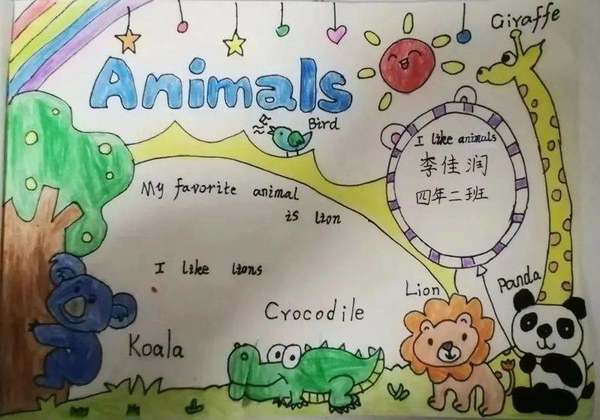 Giraffe
Animals
Bird
I like animals
李佳润
四年二班
My favorite animal
is lion
I like lions
Lion
Panda
Crocodile
Koala